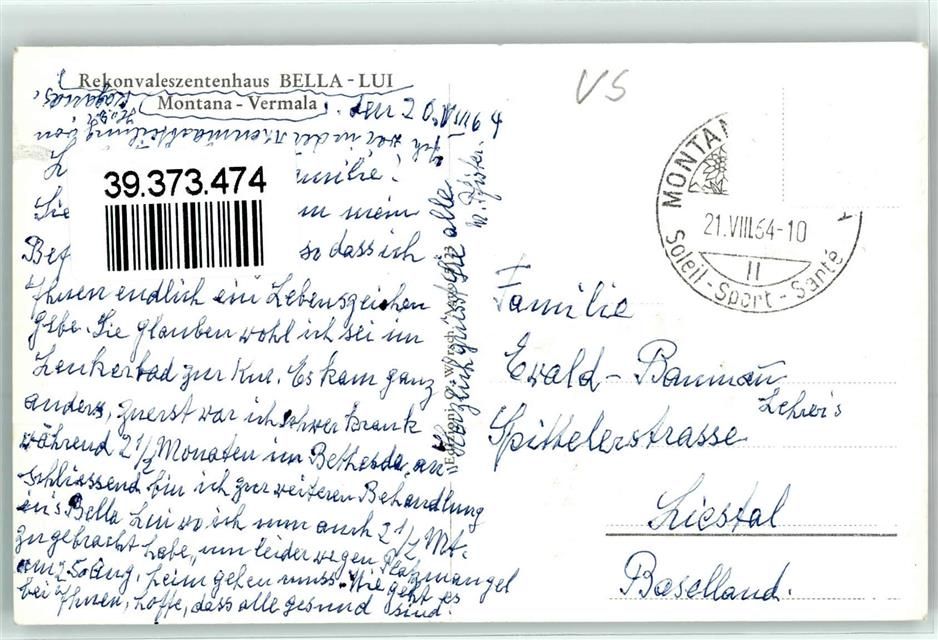 VS
Rekonvaleszentenhaus BELLA-LUI
Montana-Vermala
den 20. VIII 64
Ragaz
Ich war in der Rheumaabteilung von
amilie!
Sie in mein
Bet so dass ich
Ihnen endlich ein Lebenszeichen
gebe. Sie glauben wohl ich sei im
Leukerbad zur Kur. Es kam ganz
anders, zuerst war ich schwer krank
während 2 1/2 Monaten im Bethesda, an
schliessend bin ich zur weiteren Behandlung
ins Bella Lui wo ich nun auch 2 1/2 Mt.
zugebracht habe, nun leider wegen Platzmangel
am 25. Aug. heim gehen muss. Wie geht es
bei Ihnen, hoffe, dass alle gesund sind.
Herzlich grüsst Sie alle
M. Pfister.
39.373.474
MONTAN
21.VIII.64-10
II
Soleil-Sport-Santé
Familie
Ewald-Bauman
Lehrers
Spittelerstrasse
Liestal
Baselland.